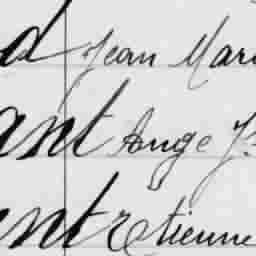 d Jean Mari
ant Ange J.
nt Etienne